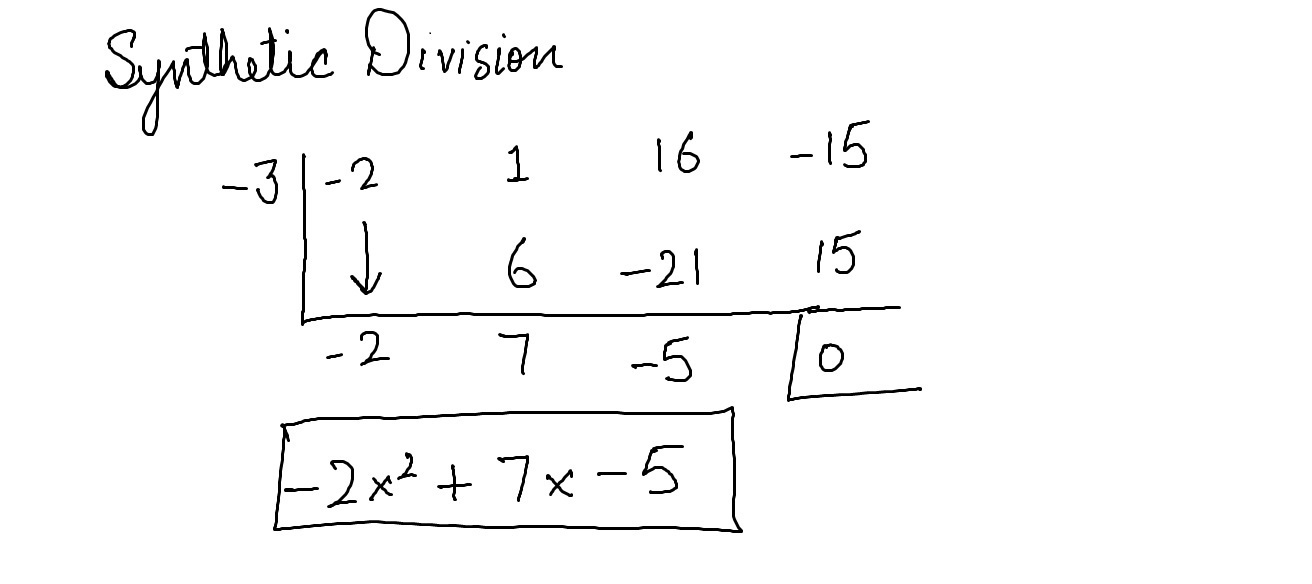 Synthetic Division
-3 | -2 1 16 -15
↓ 6 -21 15
-2 7 -5 0
-2x² + 7x - 5